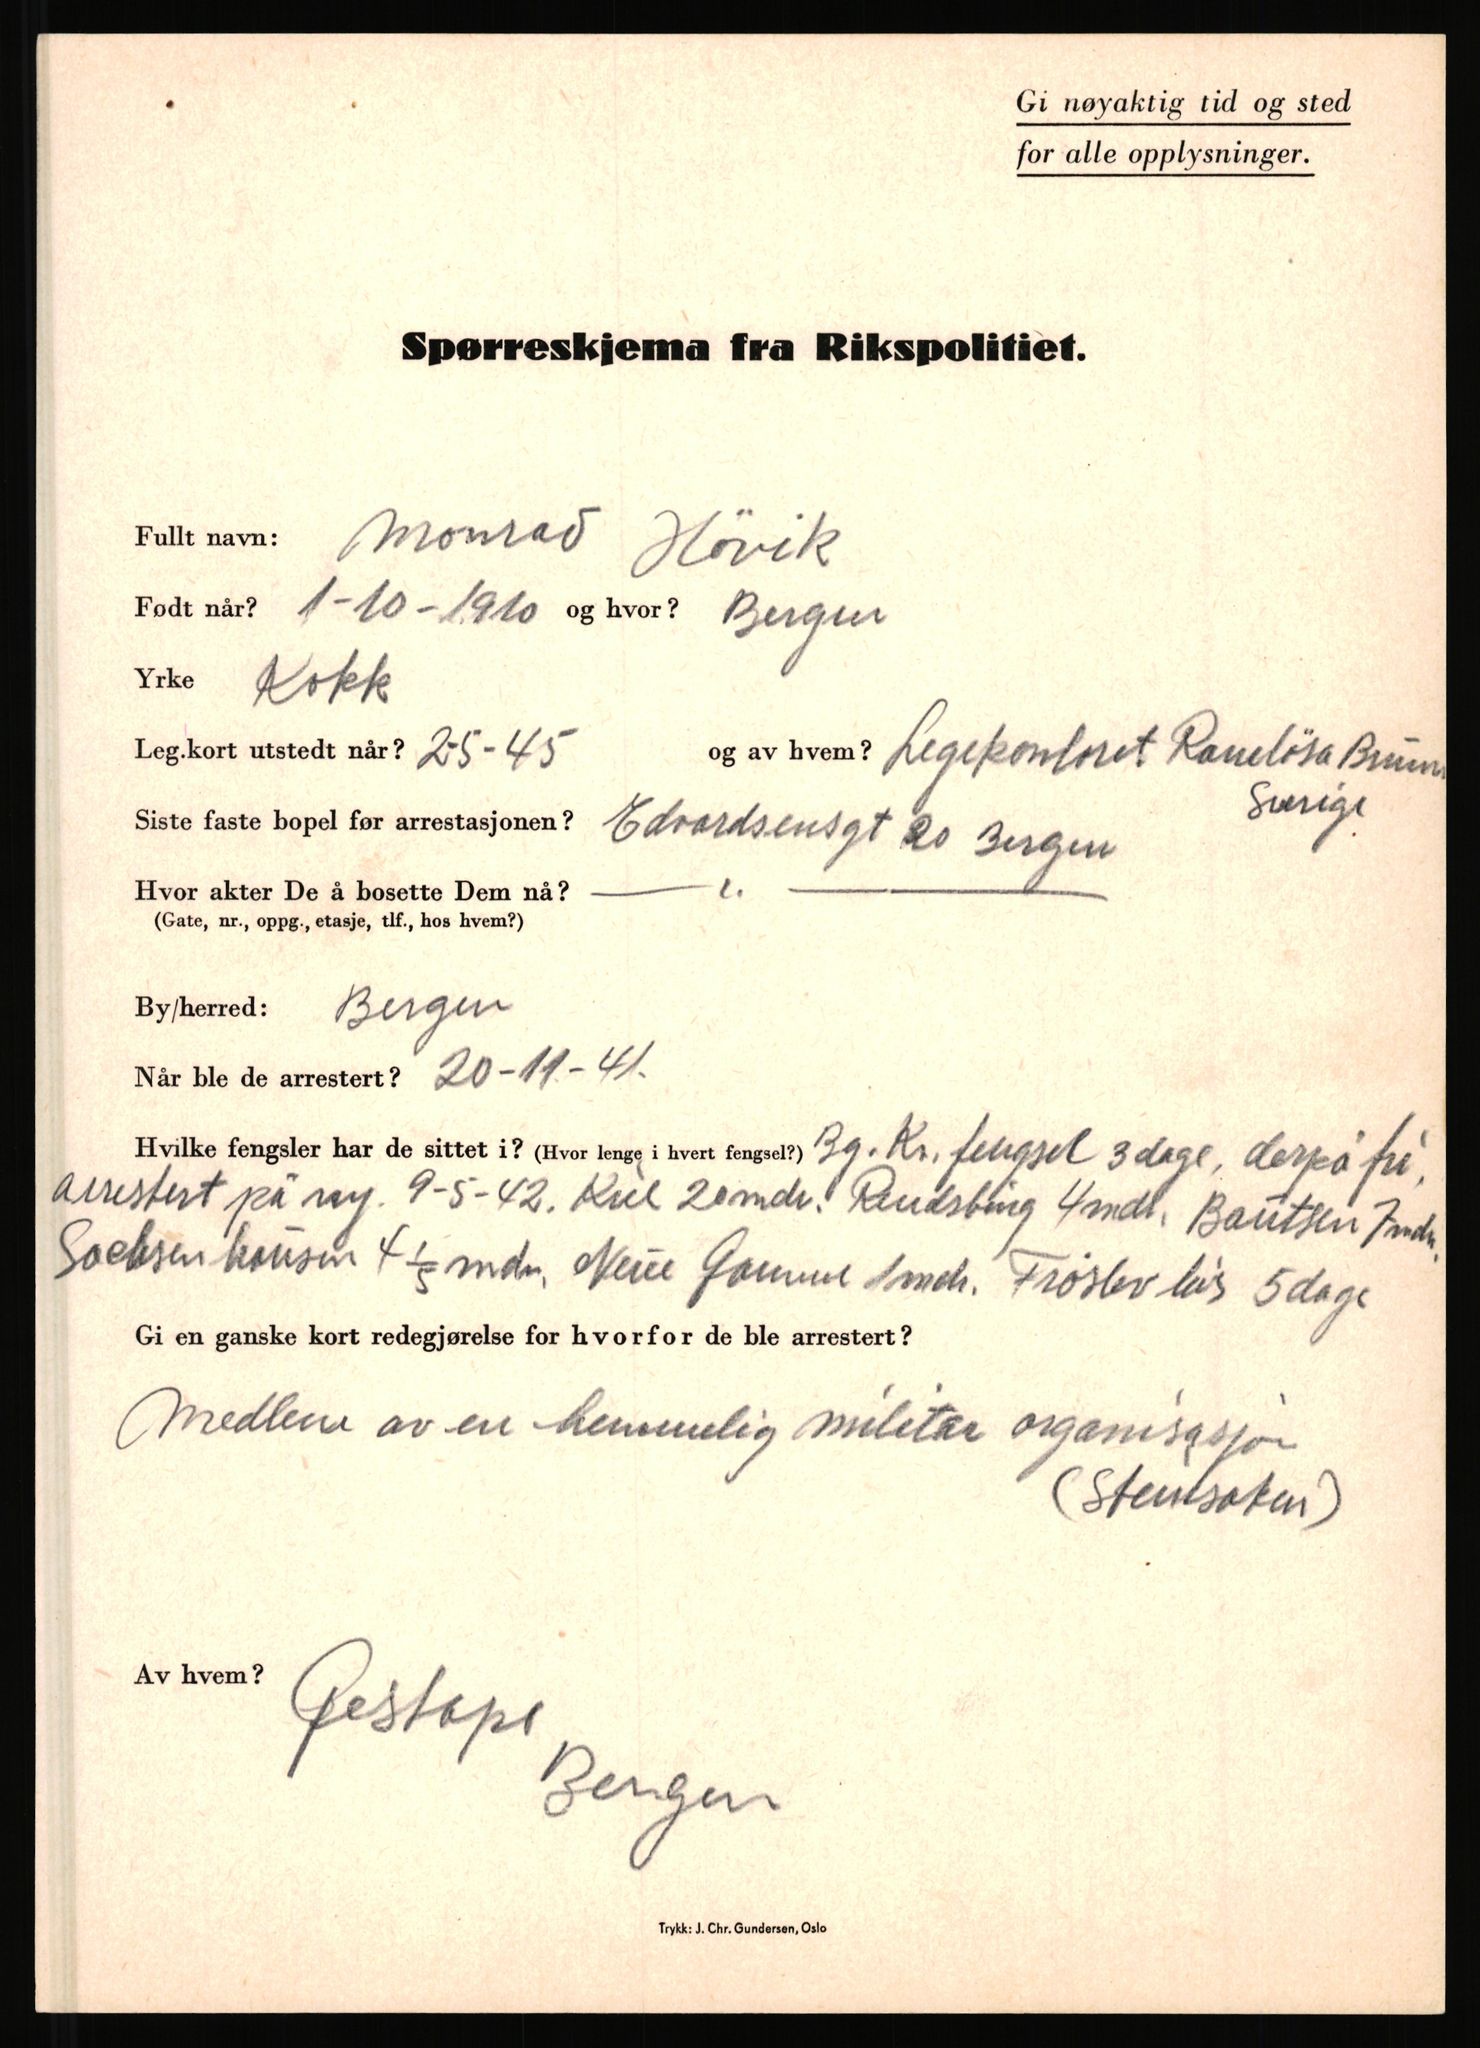 Gi nøyaktig tid og sted
for alle opplysninger.
Spørreskjema fra Rikspolitiet.
Fullt navn: Monrad Hövik
Født når? 1-10-1910 og hvor? Bergen
Yrke Kokk
Leg.kort utstedt når? 2-5-45 og av hvem? Legekontoret Ramlösa Brunn
Sverige
Siste faste bopel før arrestasjonen? Edvardsensgt 20 Bergen
Hvor akter De å bosette Dem nå? — " —
(Gate, nr., oppg., etasje, tlf., hos hvem?)
By/herred: Bergen
Når ble de arrestert? 20-11-41.
Hvilke fengsler har de sittet i? (Hvor lenge i hvert fengsel?) Bg. Kr. fengsel 3 dage, derpå fri,
arrestert på ny. 9-5-42. Kiel 20 mdr. Rendsburg 4 mdr. Bautsen 7 mdr.
Sachsenhausen 4 1/2 mdr. Neue Gamme 1 mdr. Fröslev leir 5 dage
Gi en ganske kort redegjørelse for hvorfor de ble arrestert?
Medlem av en hemmelig militær organisasjon
(Steinsaken)
Av hvem? Gestapo
Bergen
Trykk: J. Chr. Gundersen, Oslo